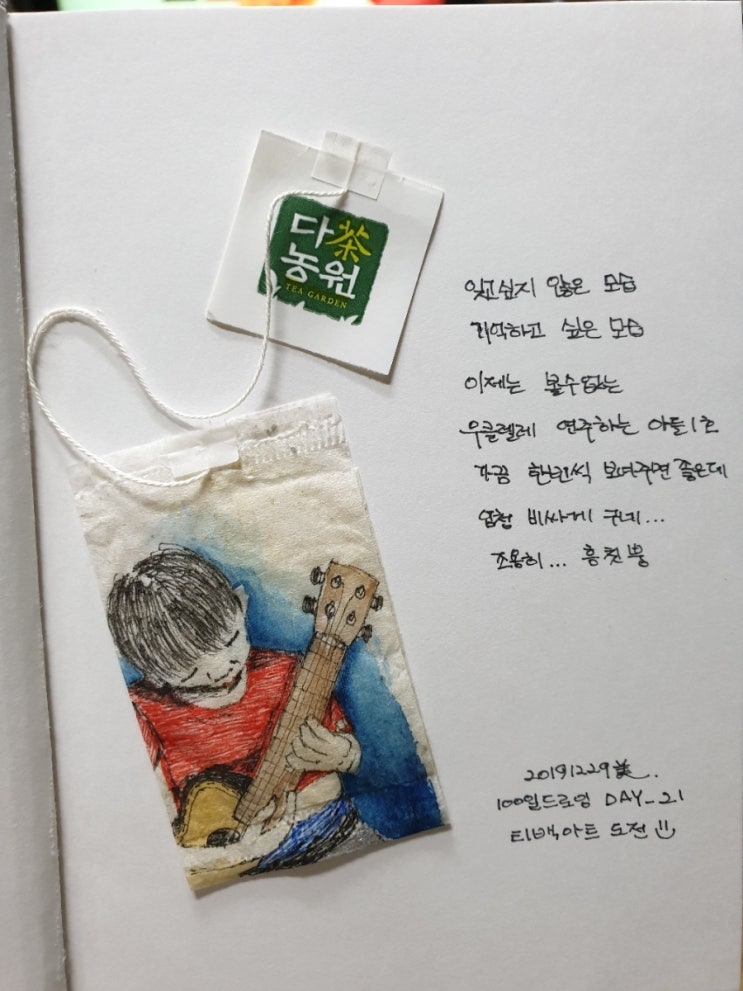 다茶
농원
TEA GARDEN
잊고싶지 않은 모습
기억하고 싶은 모습
이제는 볼수없는
우클렐레 연주하는 아들1호
가끔 한번씩 보여주면 좋은데
엄청 비싸게
조용히... 흥칫뿡
20191229美.
100일드로잉 DAY_21
티백아트 도전